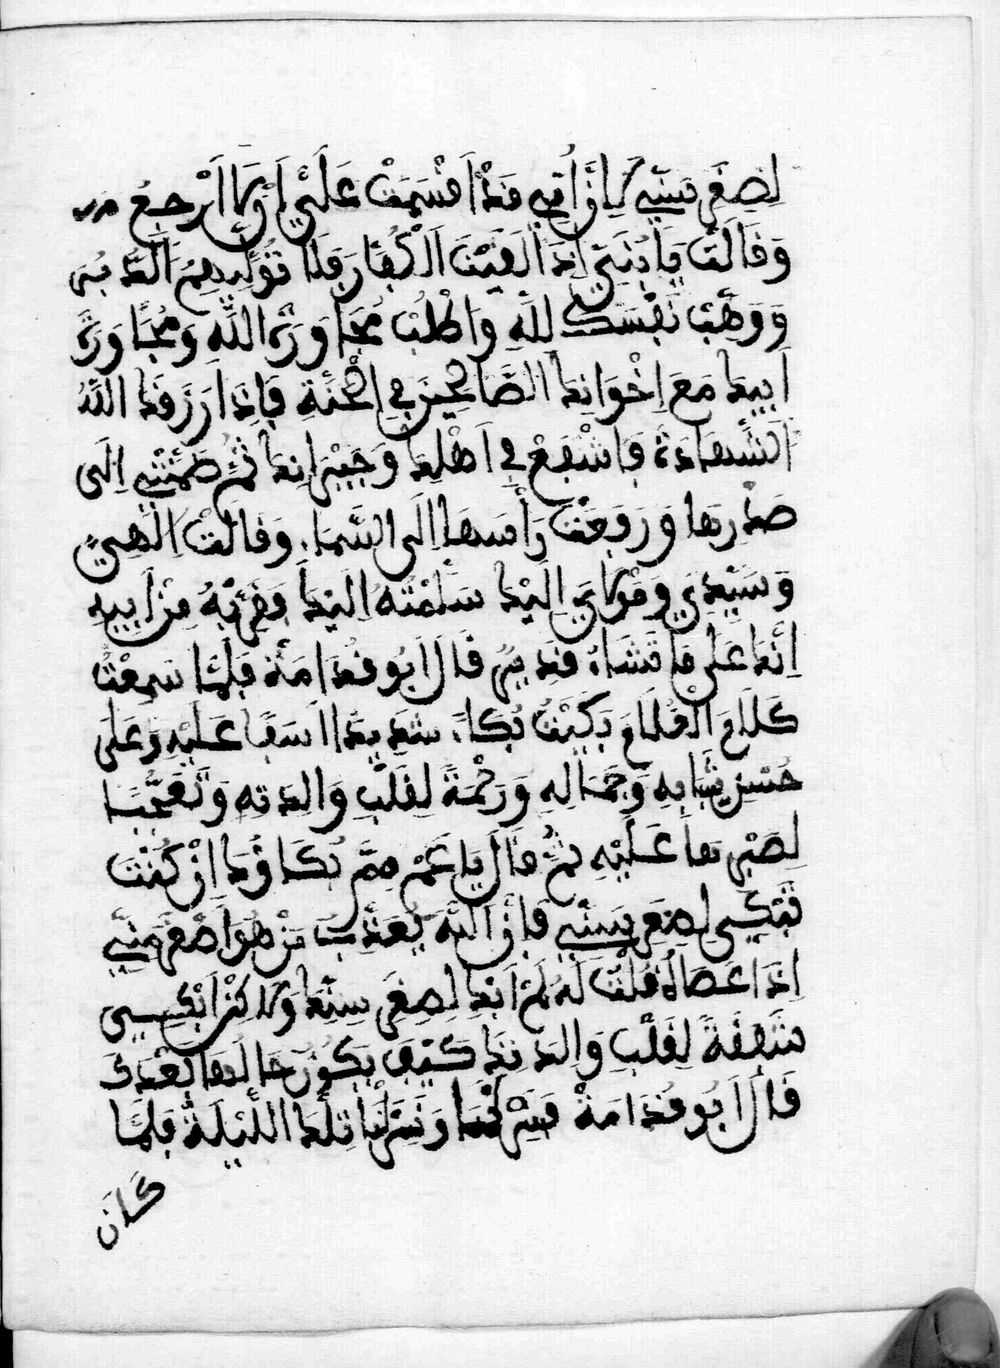 لِصِغَرِ سِنِّي لِأَنَّ أُمِّي قَدْ أَقْسَمَتْ عَلَيَّ أَنْ لَا أَرْجِعُ
وَقَالَتْ يَا بُنَيَّ إِذَا لَقِيتَ الْكُفَّارَ فَلَا تُوَلِّيهِمُ الدُّبُرَ
وَوَهِّبْ نَفْسَكَ لِلَّهِ وَاطْلُبْ مُجَاوَرَةَ اللَّهِ وَمُجَاوَرَةَ
أَبِيكَ مَعَ إِخْوَانِكَ الصَّالِحِينَ فِي الْجَنَّةِ فَإِذَا رَزَقَكَ اللَّهُ
الشَّهَادَةَ فَاشْفَعْ فِي أَهْلِكَ وَجِيرَانِكَ ثُمَّ ضَمَّتْنِي إِلَى
صَدْرِهَا وَرَفَعَتْ رَأْسَهَا إِلَى السَّمَاءِ وَقَالَتْ إِلَهِي
وَسَيِّدِي وَمَوْلَايَ إِلَيْكَ سَلَّمْتُهُ إِلَيْكَ فَقَرِّبْهُ مِنْ أَبِيهِ
إِنَّكَ عَلَى مَا تَشَاءُ قَدِيرٌ قَالَ أَبُو قُدَامَةَ فَلَمَّا سَمِعْتُ
كَلَامَ الْغُلَامِ بَكَيْتُ بُكَاءً شَدِيدًا أَسَفًا عَلَيْهِ وَعَلَى
حُسْنِ شَبَابِهِ وَجَمَالِهِ وَرَحْمَةً لِقَلْبِ وَالِدَتِهِ وَتَعَجُّبًا
لِصَبْرِهَا عَلَيْهِ ثُمَّ قَالَ يَا عَمِّ مِمَّ بُكَاؤُكَ إِنْ كُنْتَ
تَبْكِي لِصِغَرِ سِنِّي فَإِنَّ اللَّهَ يُعَذِّبُ مَنْ هُوَ أَصْغَرُ مِنِّي
إِذَا عَصَاهُ قُلْتُ لَهُ لَمْ أَبْكِ لِصِغَرِ سِنِّكَ وَلَكِنْ أَبْكِي
شَفَقَةً لِقَلْبِ وَالِدَتِكَ كَيْفَ يَكُونُ حَالُهَا بَعْدَكَ
قَالَ أَبُو قُدَامَةَ فَسِرْنَا وَنَزَلْنَا تِلْكَ اللَّيْلَةَ فَلَمَّا
كَانَ